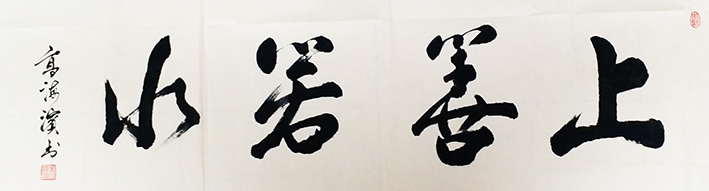 上善若水
高海滨书